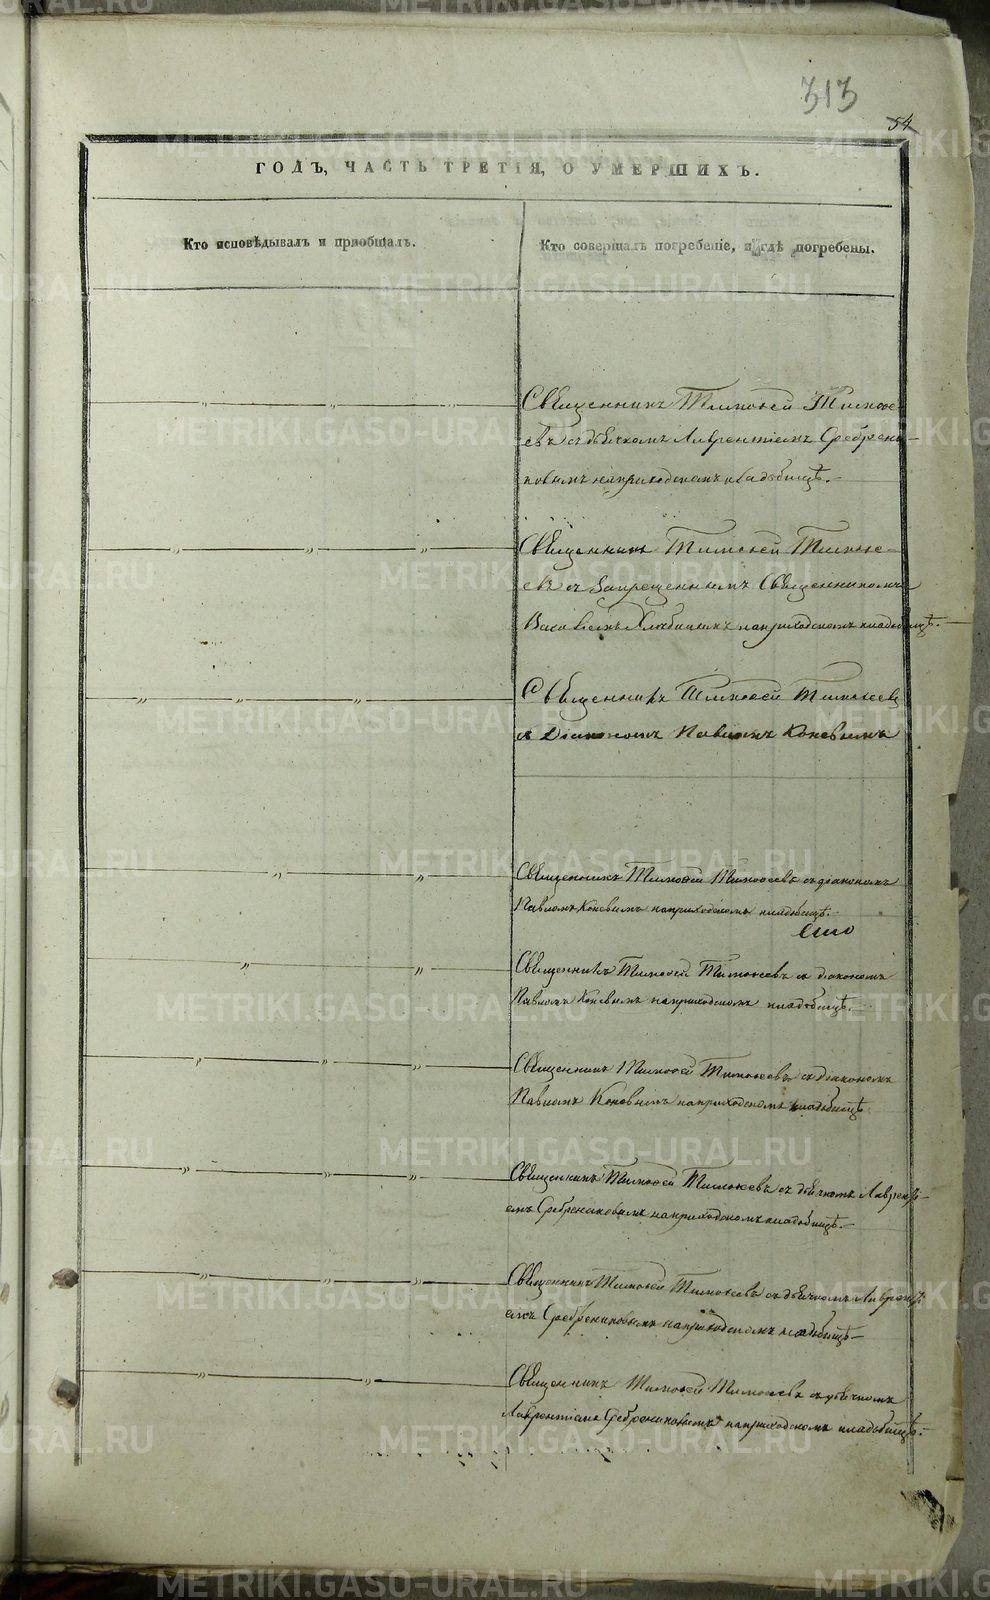 313
54
ГОДЪ, ЧАСТЬ ТРЕТІЯ, О УМЕРШИХЪ.
Кто исповѣдывалъ и пріобщалъ.
Кто совершалъ погребеніе, и гдѣ погребены.
Священникъ Тимоѳей Тимоѳе-
евъ съ дьячкомъ Лаврентіемъ Сребрени-
ковымъ на приходскомъ кладбищѣ.
Священникъ Тимоѳей Тимоѳе-
евъ съ Запрещеннымъ Священникомъ
на приходскомъ кладбищѣ.
Священникъ Тимоѳей Тимоѳеевъ
съ Діакономъ Павломъ Коневымъ
Священникъ Тимоѳей Тимоѳеевъ съ діакономъ
Павломъ Коневымъ на приходскомъ кладбищѣ.
Священникъ Тимоѳей Тимоѳеевъ съ діакономъ
Павломъ Коневымъ на приходскомъ кладбищѣ.
Священникъ Тимоѳей Тимоѳеевъ съ діакономъ
Павломъ Коневымъ на приходскомъ кладбищѣ
Священникъ Тимоѳей Тимоѳеевъ съ дьячкомъ Лаврентi-
емъ Сребрениковымъ на приходскомъ кладбищѣ.
Священникъ Тимоѳей Тимоѳеевъ съ дьячкомъ Лаврентi-
емъ Сребрениковымъ на приходскомъ кладбищѣ
Священникъ Тимоѳей Тимоѳеевъ съ дьячкомъ
Лаврентіемъ Сребрениковымъ на приходскомъ кладбищѣ.
METRIKI.GASO-URAL.RU